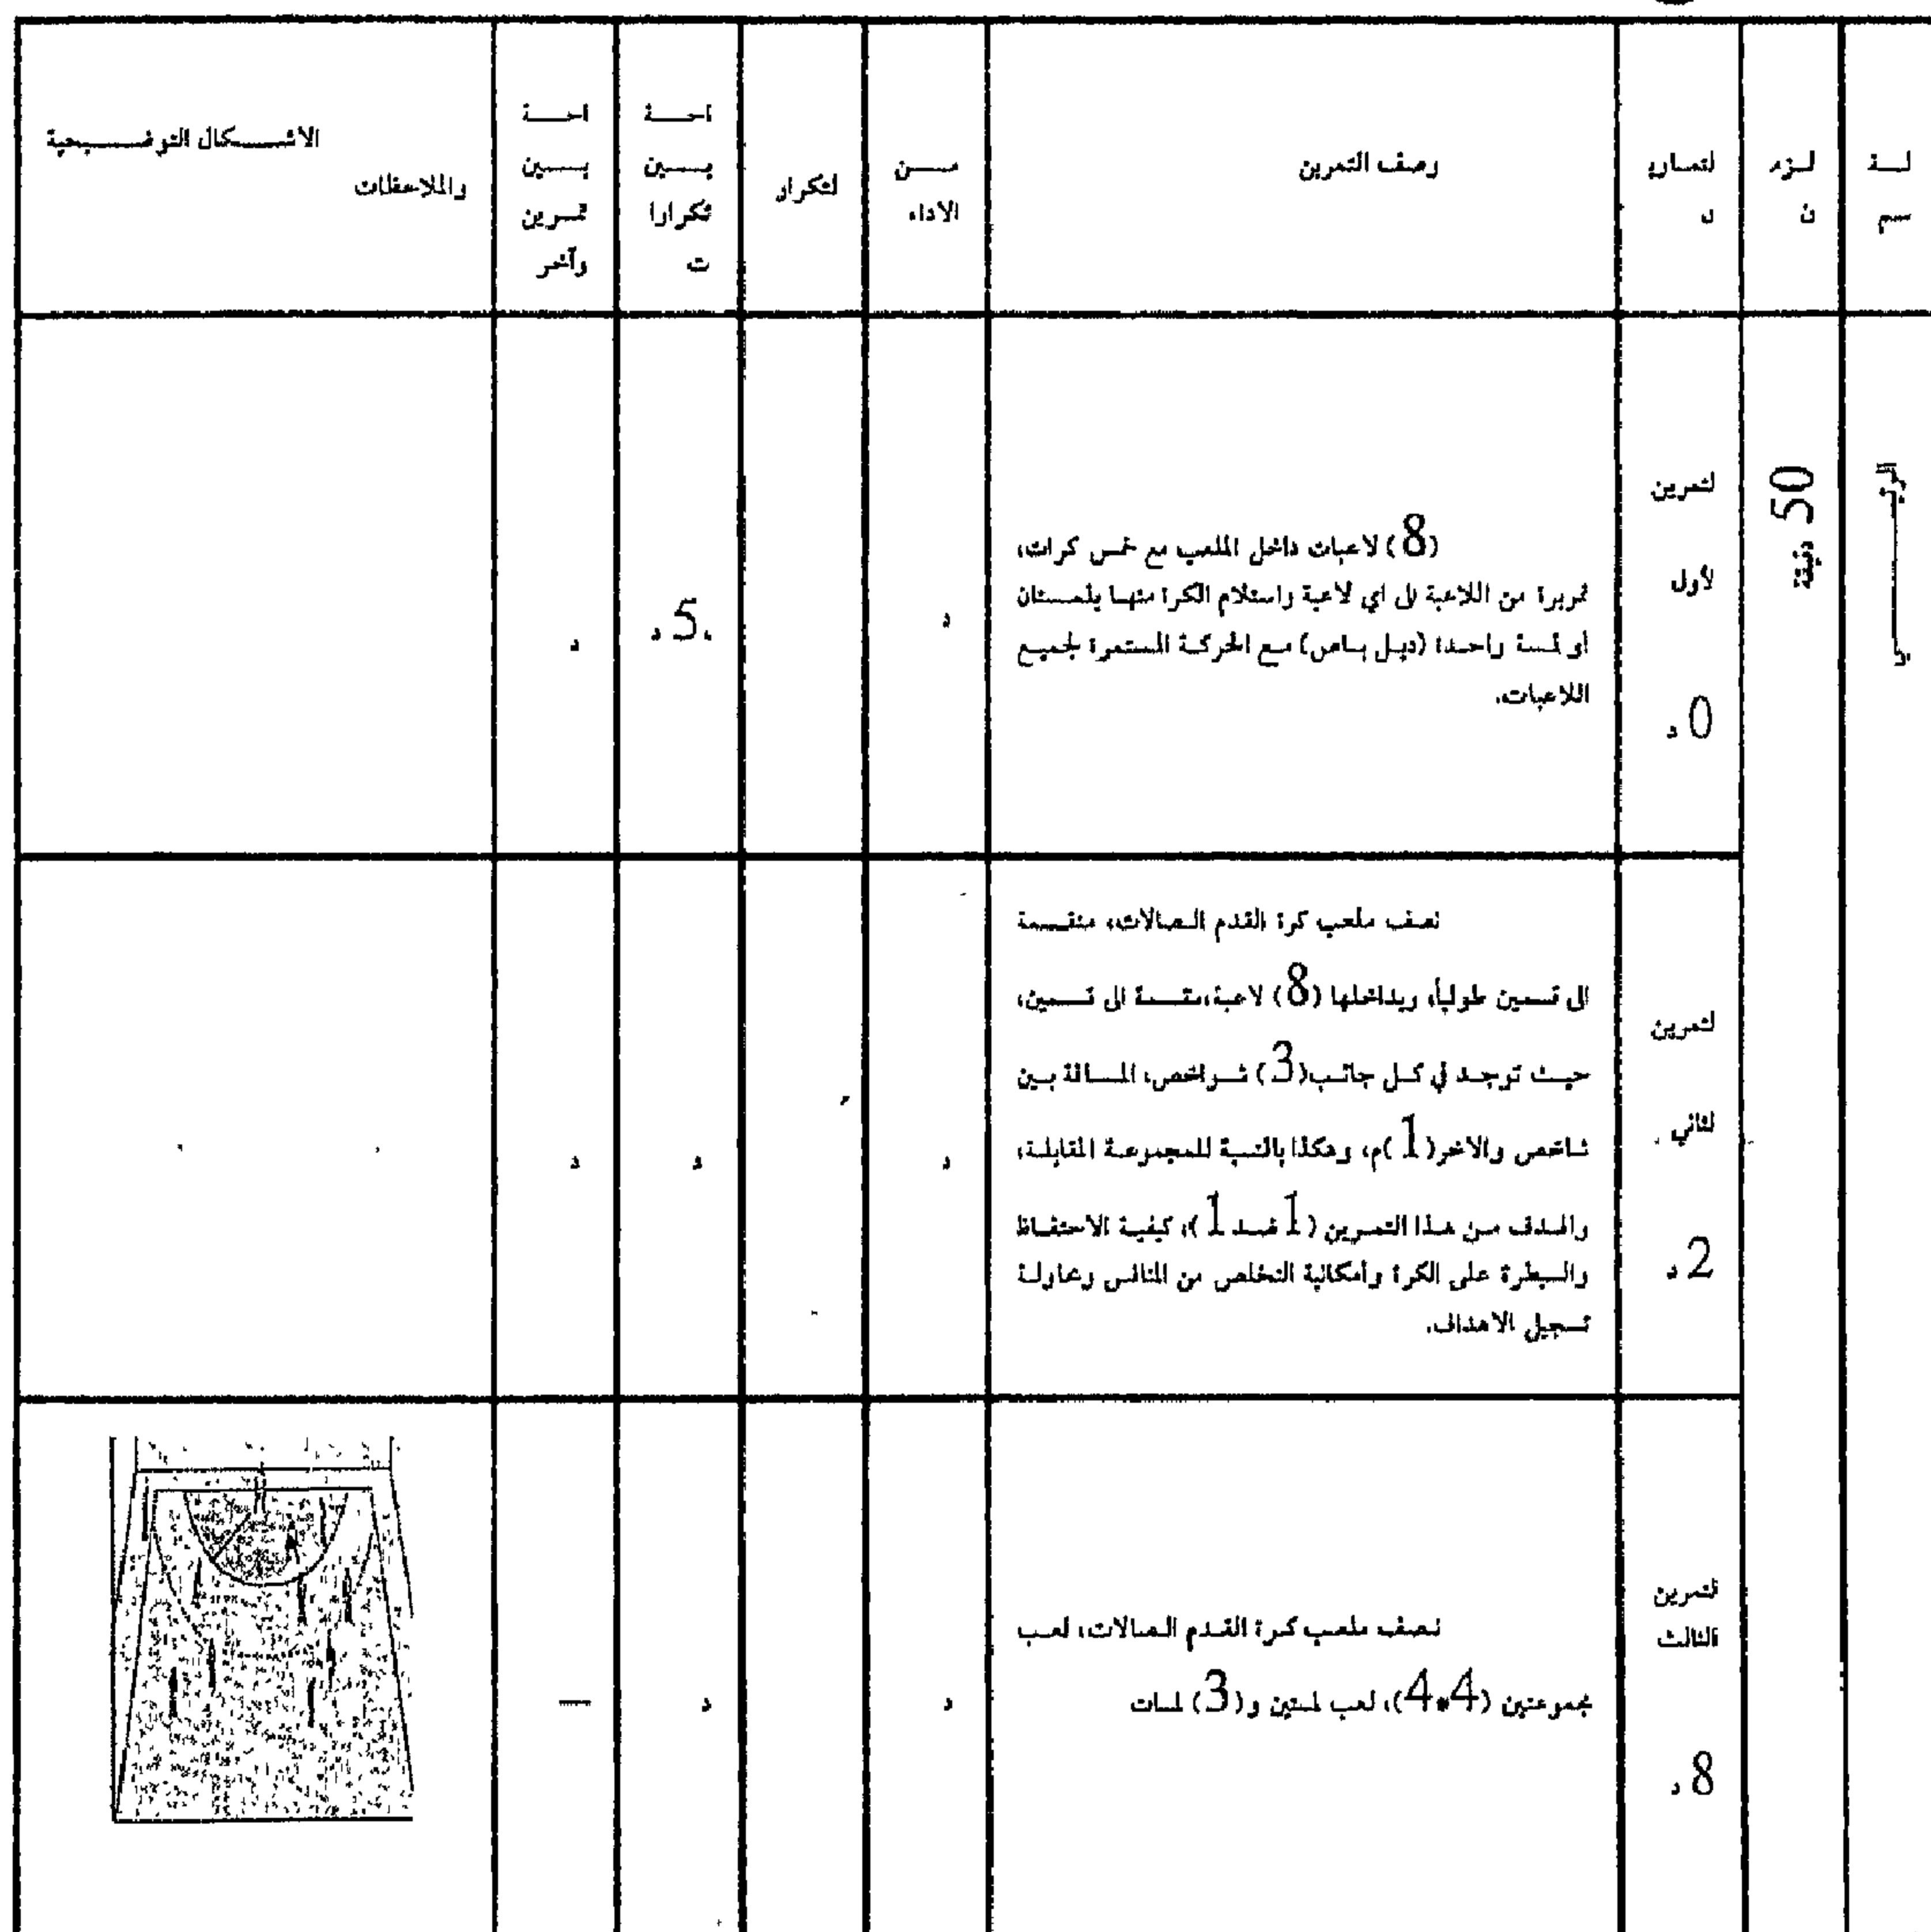 لـــة
سم
لـزم
ن
لتماري
د
وصف التمرين
مـــن
الاداء
لتكرار
احـــة
بـــين
تكرارا
ت
احـــة
بـــين
تمـرين
وآخر
الاشـــكال التوضـــيحية
والملاحظات
50 دقيقة
لتمرين
لأول
0 د
(8) لاعبات داخل الملعب مع خمس كرات،
تمريرة من اللاعبة الى اي لاعبة واستلام الكرة منهـا بلمـستان
أو لمسة واحـدة (دبـل بـاص) مـع الحركـة المـستمرة لجميـع
اللاعبات.
د
.5 د
د
لتمرين
لثاني
2 د
نصف ملعب كرة القدم الـصالات، منقـسمة
الى قسمين طولياً، وبداخلها (8) لاعبة،مقسمة الى قسمين،
حيـث توجـد في كـل جانـب(3) شـواخص، المـسافة بـين
شاخص والاخر(1)م، وهكذا بالنسبة للمجموعـة المقابلـة،
والهـدف مـن هـذا التمـرين (1 ضـد 1)، كيفيـة الاحتفـاظ
والـسيطرة على الكرة وأمكانية التخلص من المنافس ومحاولـة
تسجيل الاهداف.
د
د
د
لتمرين
الثالث
8 د
نـصف ملعـب كـرة القـدم الـصالات، لعـب
مجموعتين (4*4)، لعب لمستين و(3) لمسات
د
د
—